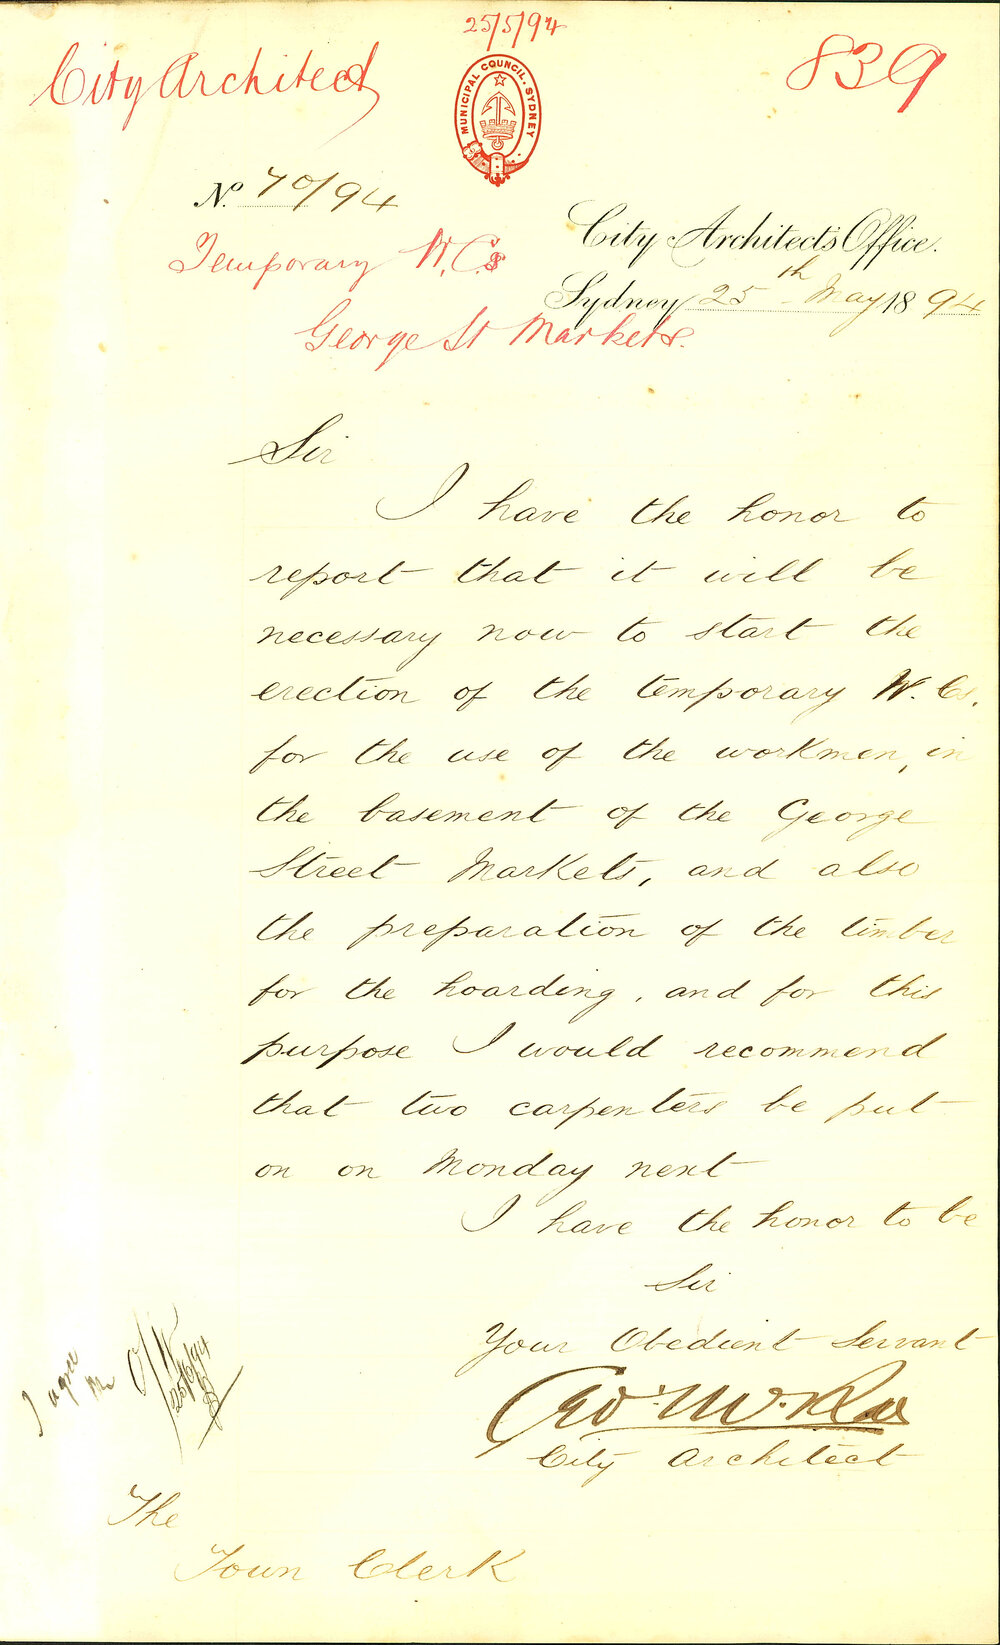 25/5/94
City Architect
839
MUNICIPAL COUNCIL. SYDNEY
No. 70/94
City Architect's Office.
Temporary W.Cs
Sydney 25th May 1894
George St Markets.
Sir
I have the honor to
report that it will be
necessary now to start the
erection of the temporary W.Cs.
for the use of the workmen, in
the basement of the George
Street Markets, and also
the preparation of the timber
for the hoarding, and for this
purpose I would recommend
that two carpenters be put
on on Monday next
I have the honor to be
Sir
Your Obedient Servant
Geo. McRae
City Architect
I agree
The
Town Clerk